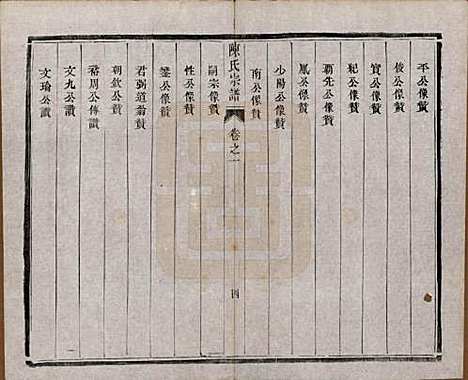 平公像贊
俊公像贊
實公像贊
紀公像贊
霸先公像贊
胤公像贊
少陽公像贊
南公像贊
陳氏宗譜
卷之一
四
嗣宗像贊
性公像贊
鎣公像贊
君弼道翁贊
朝欽公贊
裕周公傳讚
文九公讚
文瑜公讚